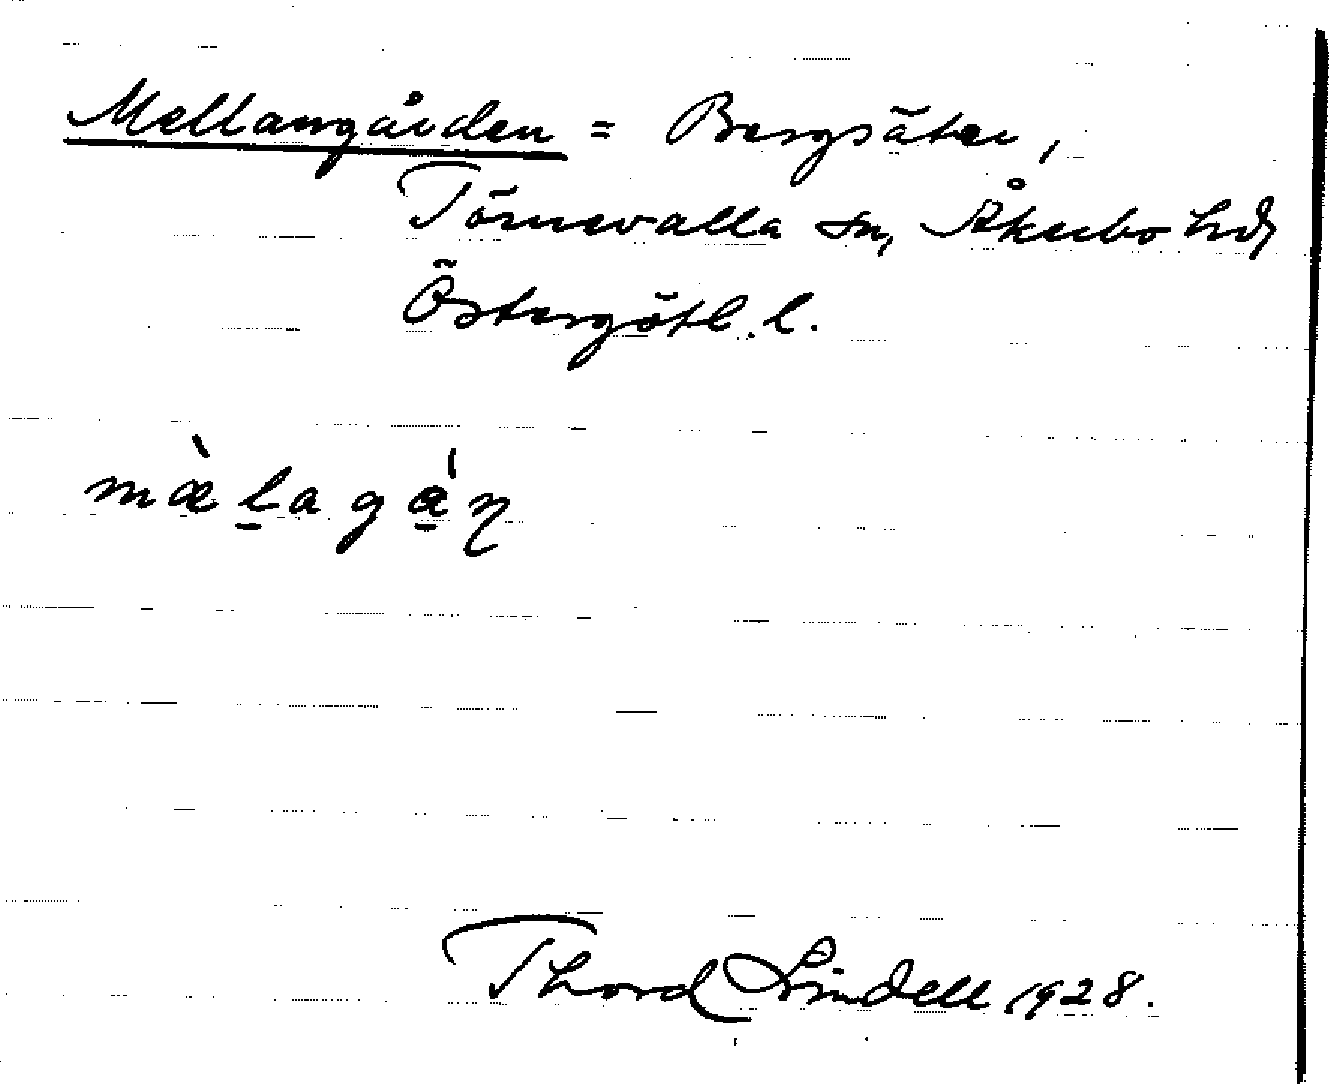 Mellangården = Bergsäter,
Törnevalla sn, Åkerbo hd,
Östergötl. l.
mæ̀l̠agá̠ɳ
Thord Lindell 1928.